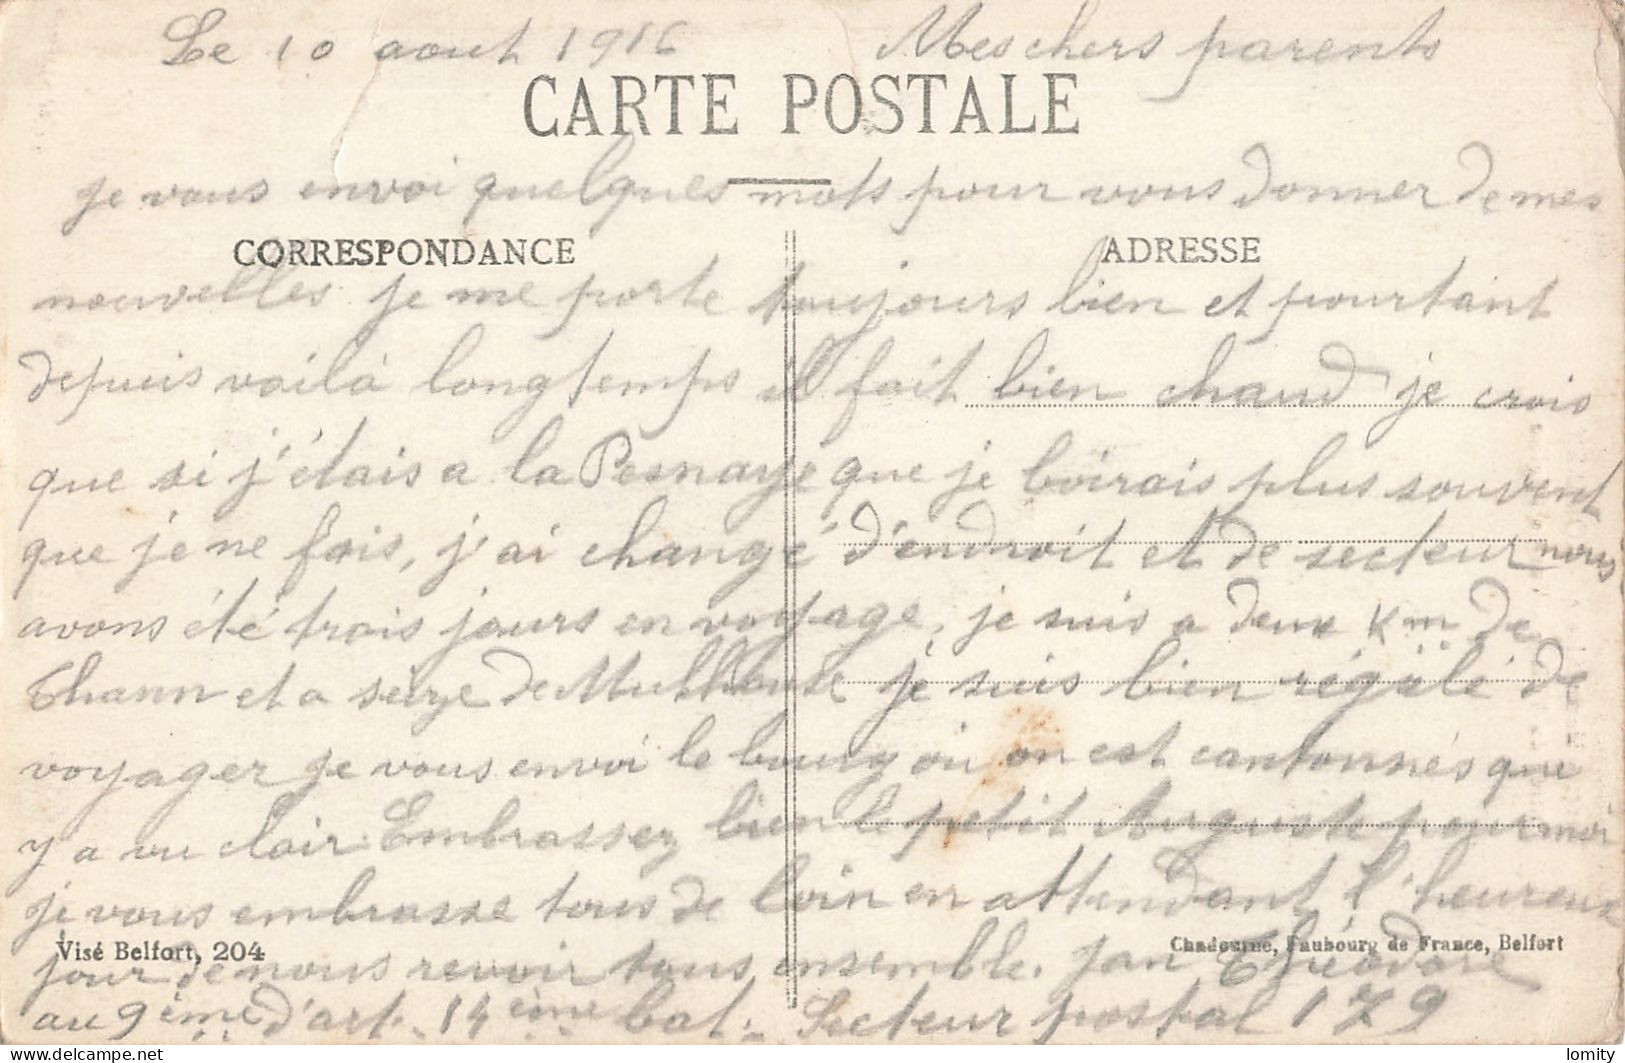 Le 10 aout 1916 Mes chers parents
CARTE POSTALE
je vous envoi quelques mots pour vous donner de mes
CORRESPONDANCE ADRESSE
nouvelles je me porte toujours bien et pourtant
depuis voilà longtemps il fait bien chaud je crois
que si j'étais a la Pesnaye que je boirais plus souvent
que je ne fais, j'ai changé d'endroit et de secteur nous
avons été trois jours en voyage, je suis a deux Km de
Thann et a seize de Mulhouse je suis bien régalé de
voyager je vous envoi le bourg ou on est cantonnés que
y a vu clair. Embrassez bien le petit Auguste pour moi
je vous embrasse tous de loin en attendant l'heureux
Visé Belfort, 204 Chadourne, Faubourg de France, Belfort
jour de nous revoir tous ensemble. Jan Théodore
au 9ème d'art. 14ème bat. Secteur postal 179
lomity